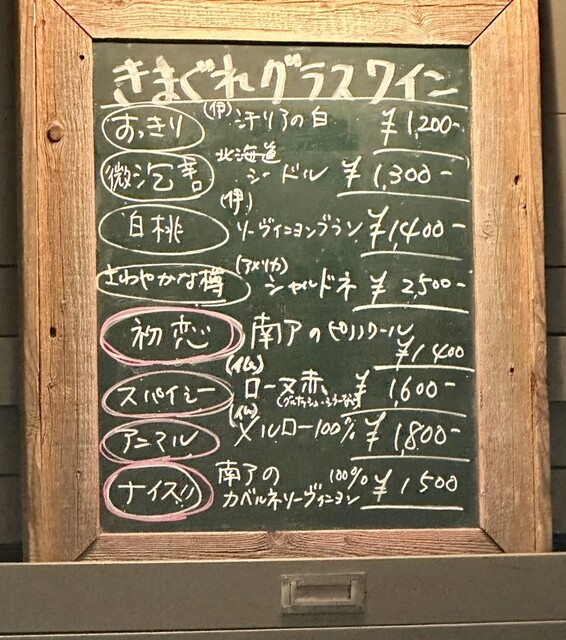 きまぐれグラスワイン
すっきり (伊) シチリアの白 ¥1,200-
微泡 北海道 シードル ¥1,300-
白桃 (伊) ソーヴィニヨンブラン ¥1,400-
さわやかな樽 (アメリカ) シャルドネ ¥2,500-
初恋 南アのピノノワール ¥1400
スパイシー (仏) ローヌ赤 (グルナッシュ・シラーなど) ¥1,600-
アニマル (仏) メルロー100% ¥1,800-
ナイス!! 南アの カベルネソーヴィニヨン 100% ¥1500